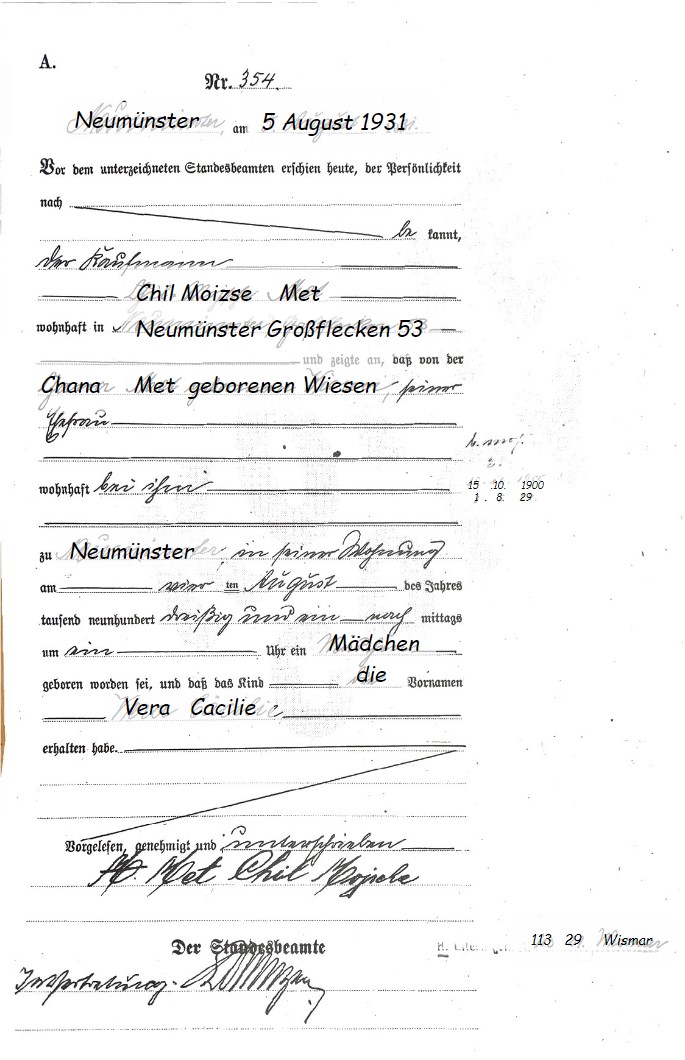 A.
Nr. 354.
Neumünster, am 5 August 1931
Vor dem unterzeichneten Standesbeamten erschien heute, der Persönlichkeit
nach
be kannt,
der Kaufmann
Chil Moizse Met
wohnhaft in Neumünster Großflecken 53
und zeigte an, daß von der
Chana Met geborenen Wiesen, seiner
Ehefrau
wohnhaft bei ihm
15 .10. 1900
1 . 8: 29
zu Neumünster, in seiner Wohnung
am vier ten August des Jahres
tausend neunhundert dreißig und ein nach mittags
um ein Uhr ein Mädchen
geboren worden sei, und daß das Kind die Vornamen
Vera Cacilie
erhalten habe.
Vorgelesen, genehmigt und unterschrieben
Met Chil Mojsche
113 29 Wismar
Der Standesbeamte
In Vertretung.